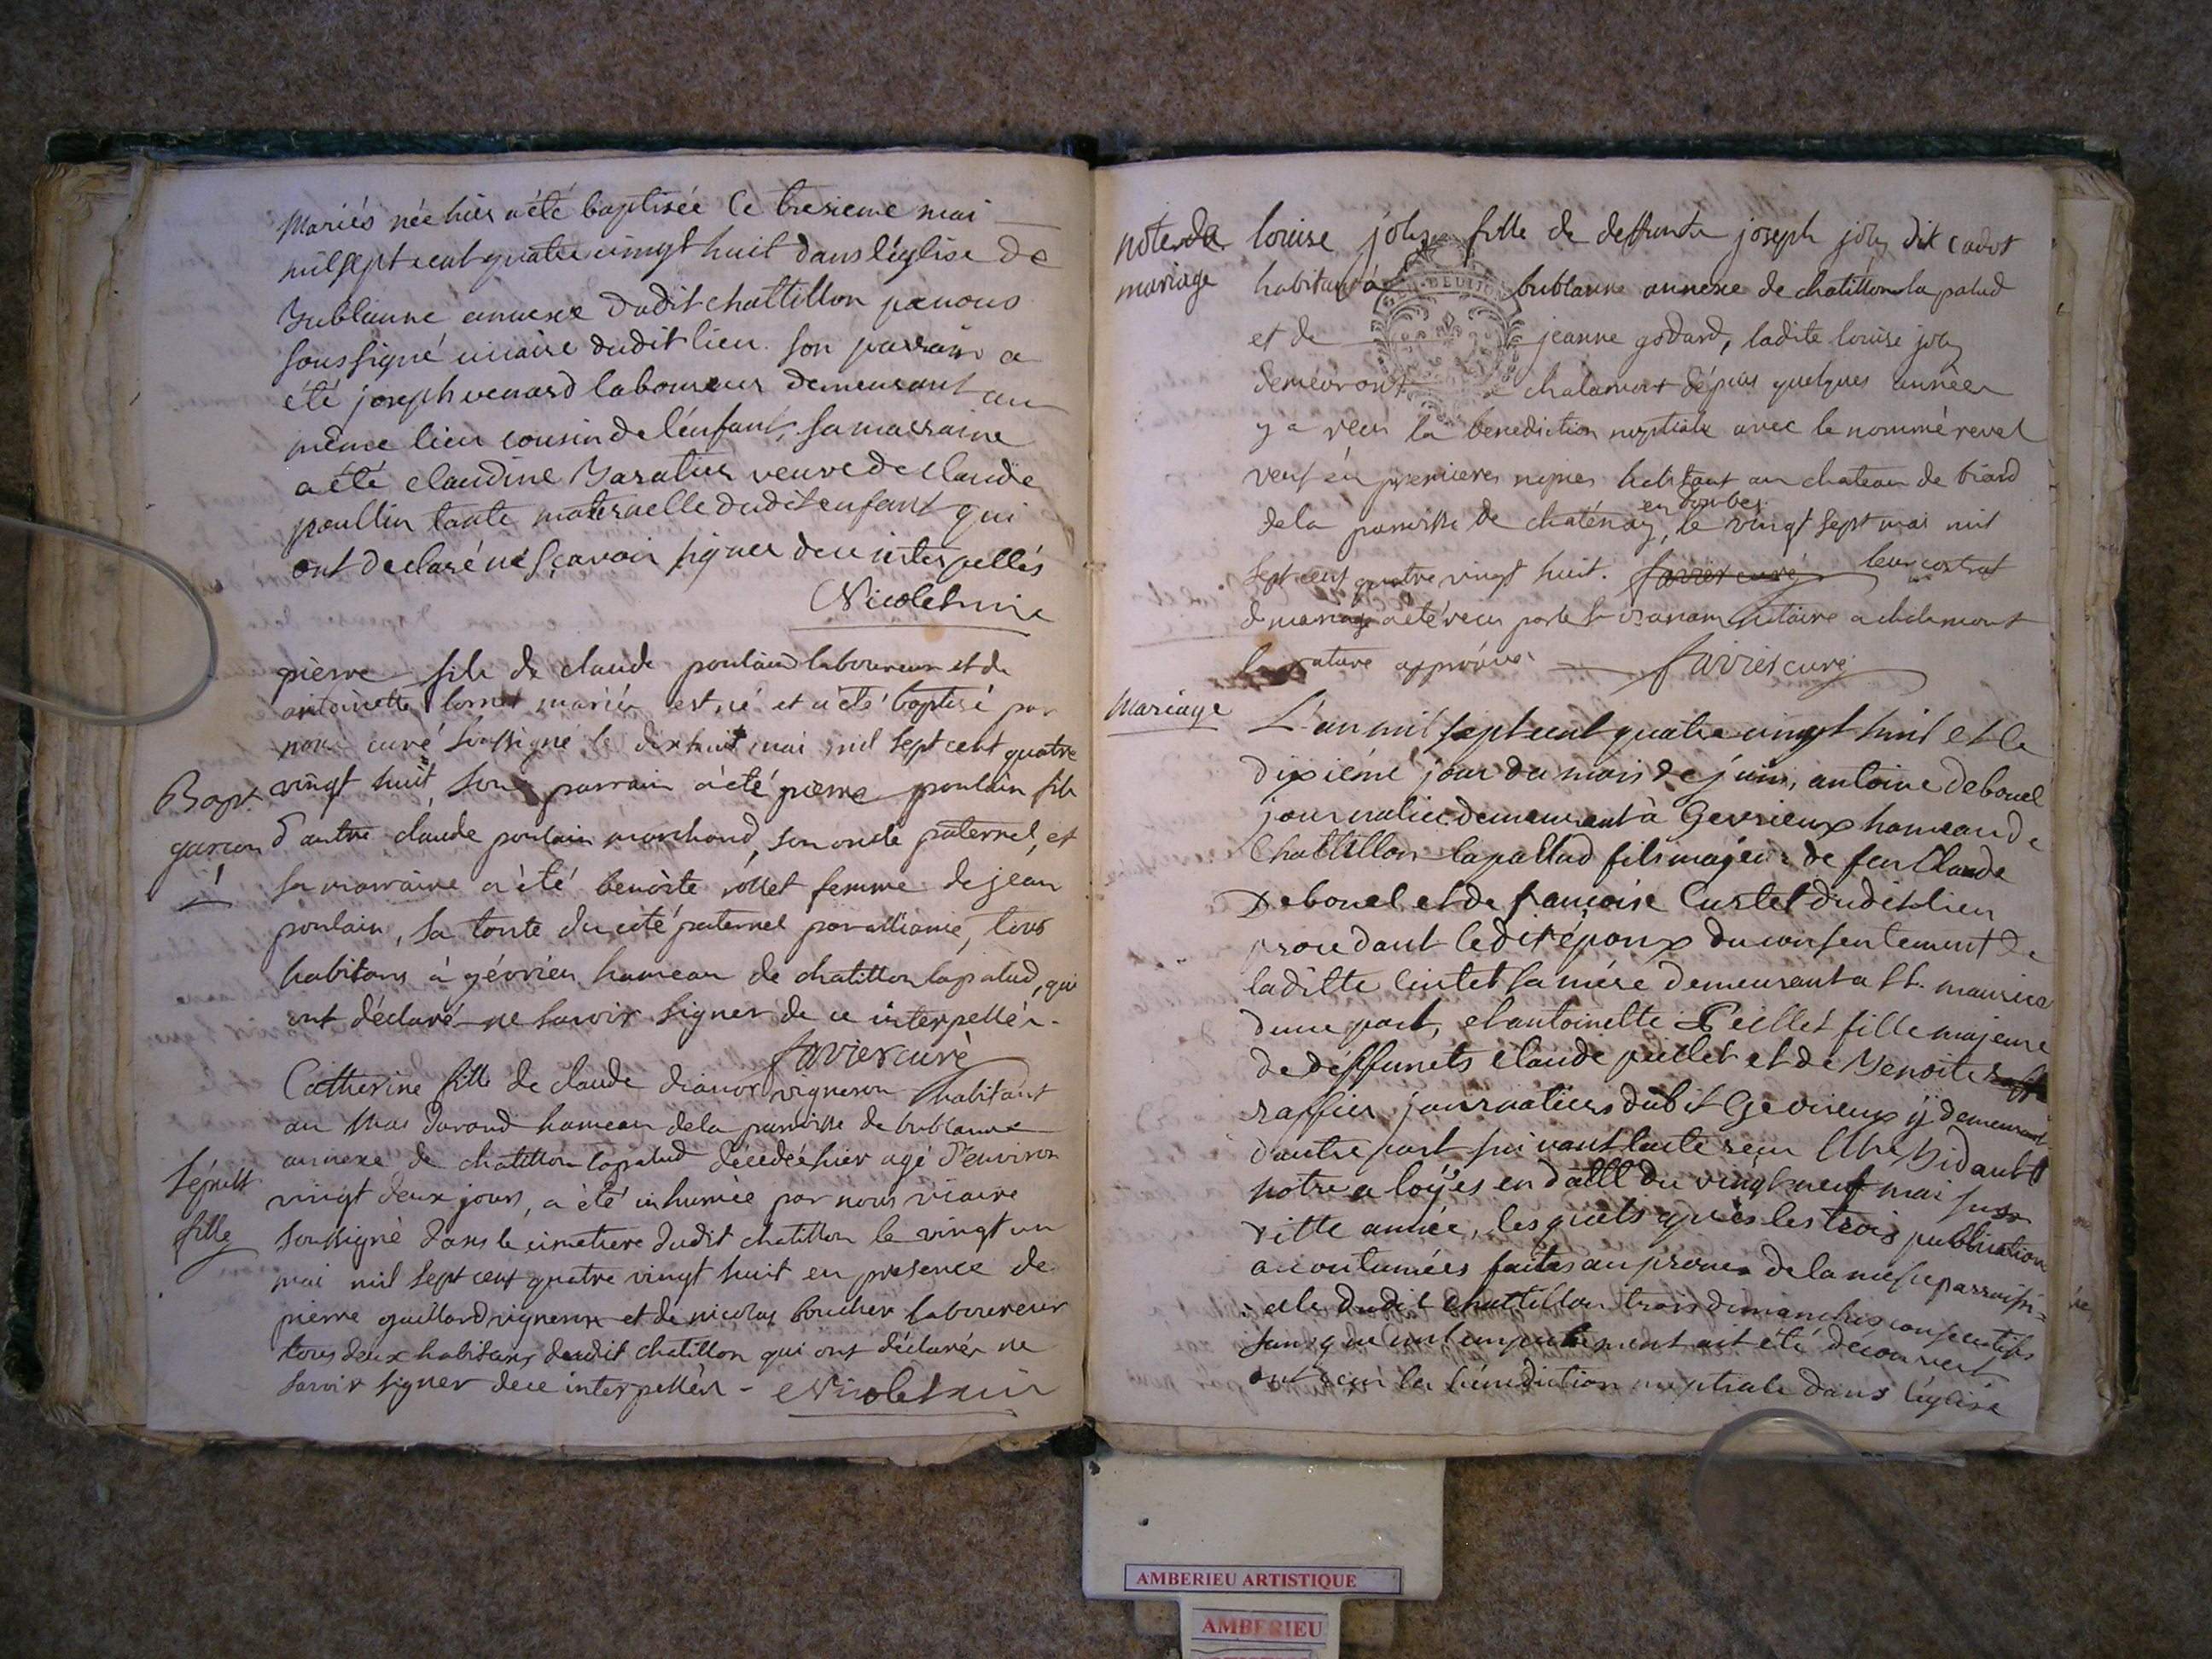 Mariés née hier a été baptisée ce tresieme mai
mil sept cent quatre vingt huit dans l'église de
Bublanne annexe dudit chattillon par nous
soussigné vicaire dudit lieu. son parrain a
été joseph venard laboureur demeurant au
même lieu cousin de l'enfant, sa marraine
a été claudine veuve de claude
poullin tante maternelle dudit enfant qui
ont declaré ne sçavoir signer de ce interpellés
Nicolet vic
pierre fils de claude poulain laboureur et de
antoinette mariés est né et a été baptisé par
nous curé soussigné le dix huit mai mil sept cent quatre
Bapt. vingt huit, son parrain a été pierre poulain fils
garçon d'autre claude poulain marchand, son oncle paternel, et
sa marraine a été benoite femme de jean
poulain, sa tante du coté paternel par alliance, tous
habitans à gévrieu hameau de chatillon lapalud, qui
ont déclaré ne savoir signer de ce interpellés.
favier curé
Catherine fille de claude vigneron habitant
au Mas Durand hameau de la paroisse de bublanne
annexe de chatillon lapalud décedée hier agé d'environ
Sépult. vingt deux jours, a été inhumée par nous vicaire
fille soussigné dans le cimetiere dudit chatillon le vingt un
mai mil sept cent quatre vingt huit en presence de
pierre guillard vigneron et de nicolas boucher laboureur
tous deux habitans dudit chatillon qui ont déclarés ne
savoir signer de ce interpellés - Nicolet vic
note de louise joly fille de deffunts joseph joly dit cadot
mariage habitant à bublanne annexe de chatillon la palud
et de jeanne godard, ladite louise joly
demeurant a chalamont dépuis quelques années
y a reçu la benediction nuptiale avec le nommé revel
veuf en premieres nopces habitant au chateau de
en dombes
de la paroisse de chaténay, le vingt sept mai mil
sept cent quatre vingt huit. favier curé leur contrat
de mariage a été reçu par le Sr notaire a chalamont
la rature approuvée favier curé
Mariage L'an mil sept cent quatre vingt huit et le
dixiéme jour du mois de juin, antoine debouel
journalier demeurant à Gevrieux hameau de
Chattillon lapallud fils majeur de feu Claude
Debouel et de françoise dudit lieu
procedant ledit époux du consentement de
laditte sa mére demeurant a St. maurice
d'une part, et antoinette Peillet fille majeure
de deffunts claude peillet et de Benoite
raffier journaliers dudit Gevrieux ÿ demeurant
d'autre part suivant l'acte reçu Mre Bidault
notre a loÿes en datte du vingt neuf mai sus
ditte année, lesquels après les trois publication
accoutumées faites au prones de la messe parroissi=
ale dudit chattillon trois dimanches consecutifs
sans que nul empechement ait été découvert
ont reçu la bénediction nuptiale dans l'église
AMBERIEU ARTISTIQUE
AMBERIEU